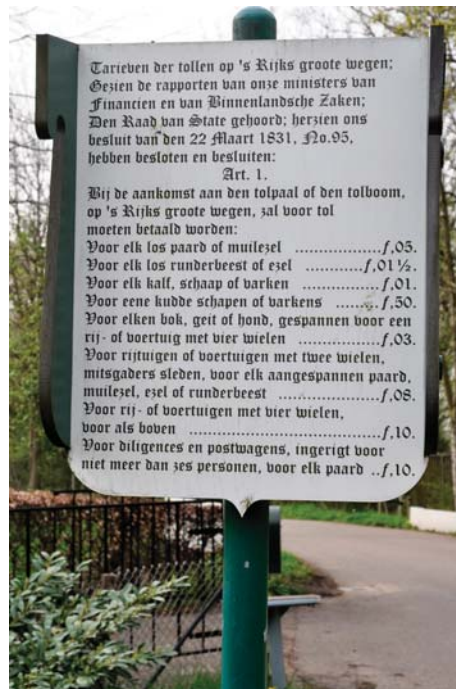 Tarieven der tollen op 's Rijks groote wegen;
Gezien de rapporten van onze ministers van
Financien en van Binnenlandsche Zaken;
Den Raad van State gehoord; herzien ons
besluit van den 22 Maart 1831, No.95,
hebben besloten en besluiten:
Art. 1.
Bij de aankomst aan den tolpaal of den tolboom,
op 's Rijks groote wegen, zal voor tol
moeten betaald worden:
Voor elk los paard of muilezel ......................f,05.
Voor elk los runderbeest of ezel ..............f,01½.
Voor elk kalf, schaap of varken ..................f,01.
Voor eene kudde schapen of varkens ........f,50.
Voor elken bok, geit of hond, gespannen voor een
rij- of voertuig met vier wielen ....................f,03.
Voor rijtuigen of voertuigen met twee wielen,
mitsgaders sleden, voor elk aangespannen paard,
muilezel, ezel of runderbeest .......................f,08.
Voor rij- of voertuigen met vier wielen,
voor als boven ................................................f,10.
Voor diligences en postwagens, ingerigt voor
niet meer dan zes personen, voor elk paard ..f,10.